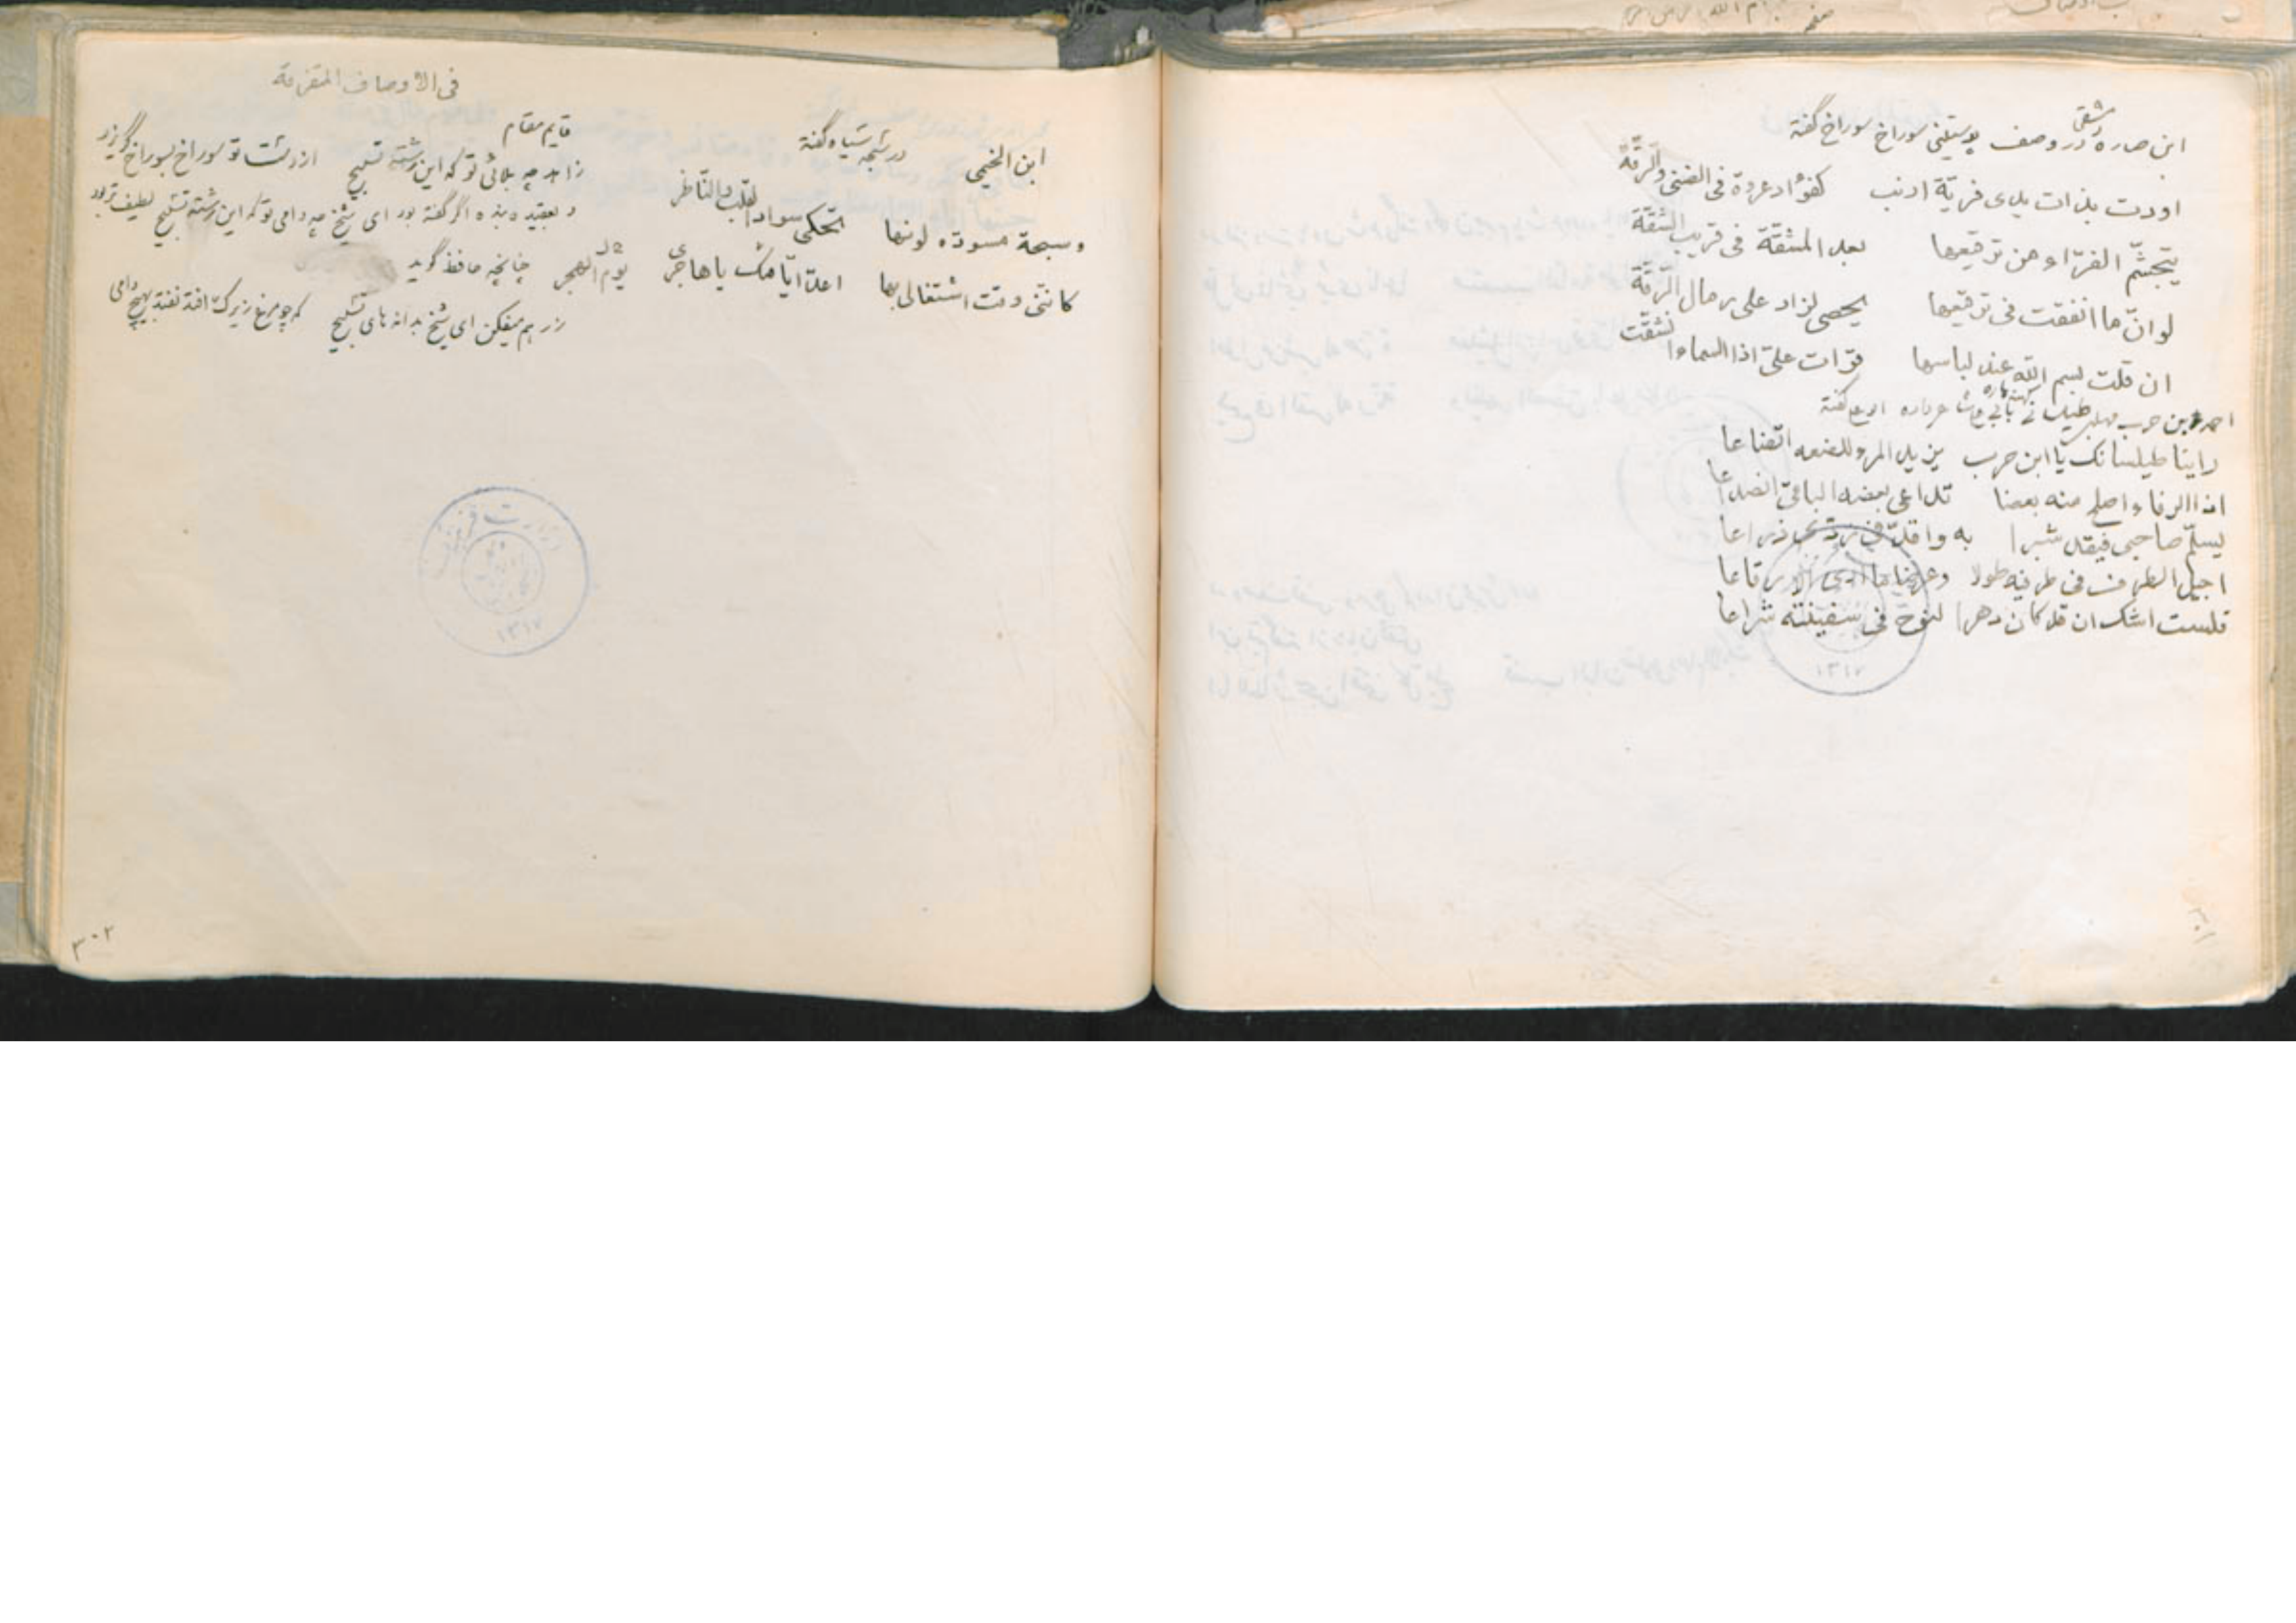 ابن صاره دمشقی در وصف پوستینی سوراخ سوراخ گفته
اودت بذات یدی فریّة ارنب کفؤاد عروة فی الضنی والرقّة
یتجشّم الفرّاء من ترقیعها بعد المشقّة فی قریب الشقّة
لو انّ ما انفقت فی ترقیعها یحصی لزاد علی رمال الرّقّة
ان قلت بسم اللّه عند لباسها قرات علیّ اذا السماء انشقّت
احمد بن حرب گفته
راینا طیلسانک یا ابن حرب یزید المرء للضعه اتّضاعا
اذا الرفاء اصلح منه بعضا تداعی بعضه الباقی انصداعا
یسلّم صاحبی فیقد شبرا به واقدّ فی ردّی ذراعا
اجیل الطرف فی طرفیه طولا وعرضا ما اری الا رقاعا
فلست اشک ان قد کان دهرا لنوح فی سفینته شراعا
۱۳۱۷
۳۰۱
فی الاوصاف المتفرقة
ابن الخیمی در سبحه سیاه گفته
وسبحة مسودة لونها تحکی سواد القلب والنّاظر
کانّنی وقت اشتغالی بها اعدّ ایّامک یا هاجری یوم الهجر
قایم مقام
زاهد چه بلائی تو که این رشته تسبیح از دست تو سوراخ بسوراخ گریزد
و بعقیده بنده اگر گفته بود ای شیخ چه دامی تو که این رشته تسبیح لطیف تر بود
چنانچه حافظ گوید
ز رهم میفکن ای شیخ بدانه های تسبیح که چو مرغ زیرک افتد نفتد بهیچ دامی
وزارت
۱۳۱۷
۳۰۲